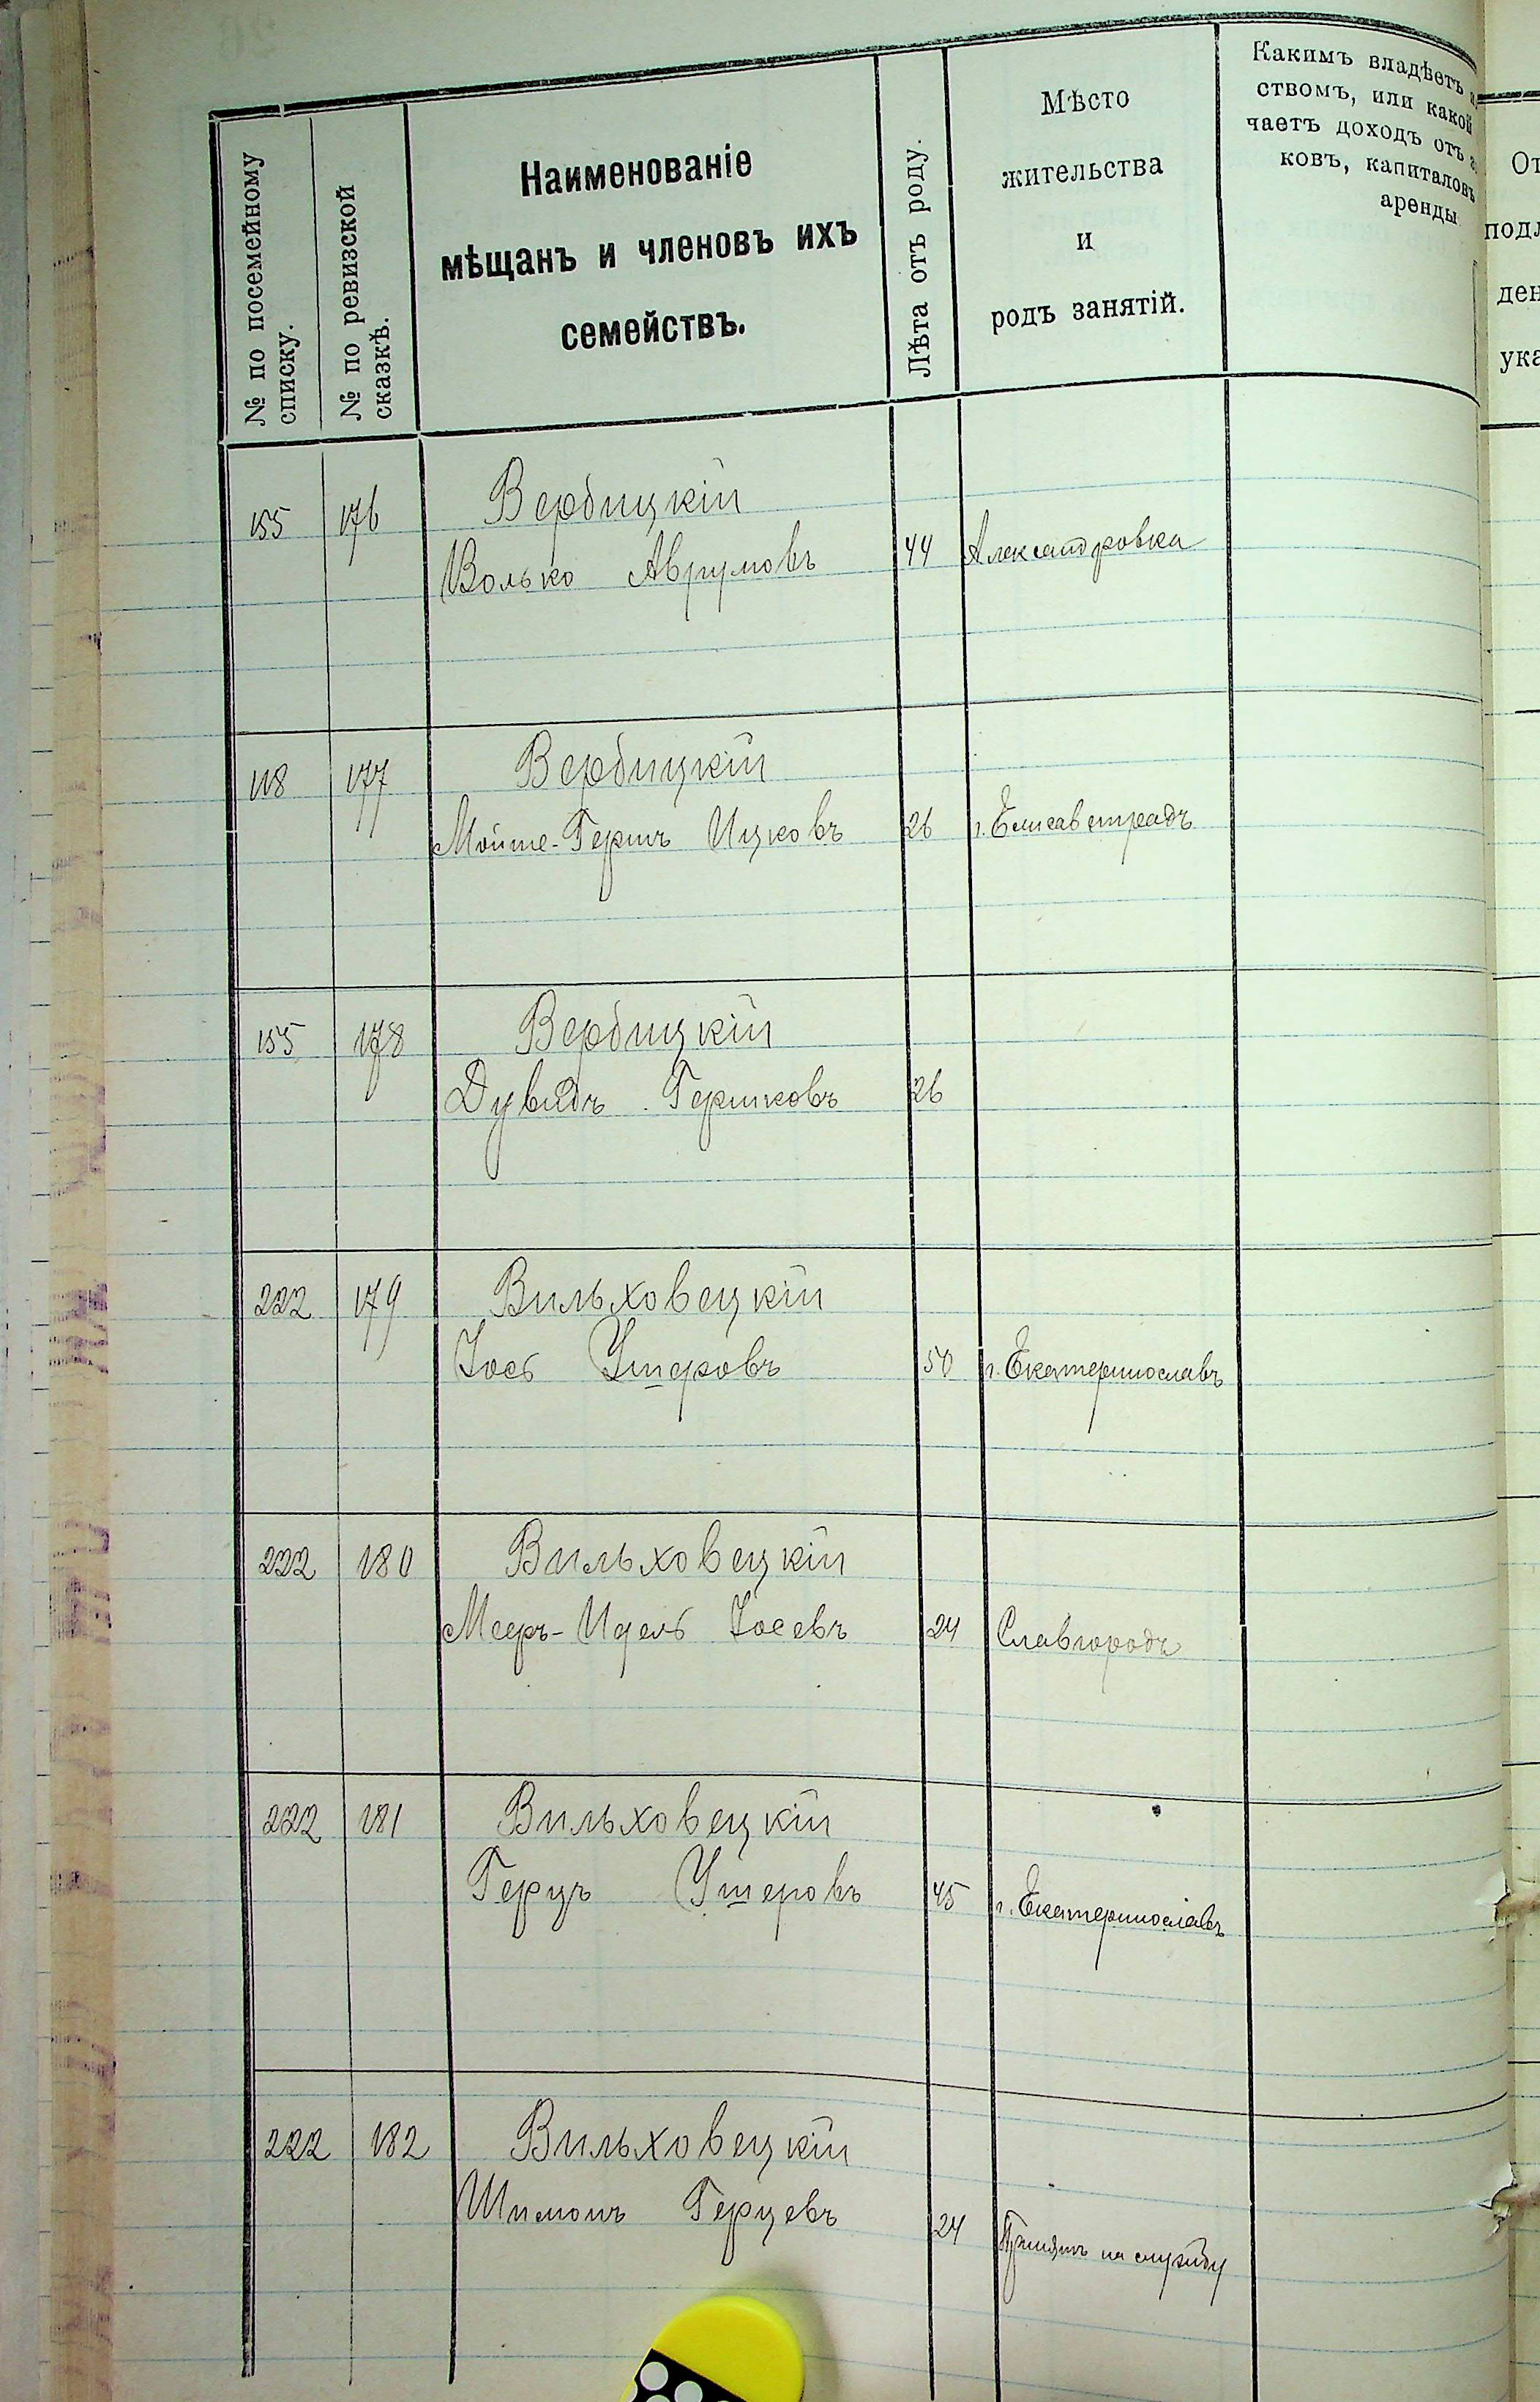 № по посемейному
списку.
№ по ревизской
сказкѣ.
Наименованіе
мѣщанъ и членовъ ихъ
семействъ.
Лѣта отъ роду.
Мѣсто
жительства
и
родъ занятій.
Какимъ владѣетъ
ствомъ, или какой
чаетъ доходъ отъ
ковъ, капиталовъ
аренды
От
подл
ден
ука
155 176 Вербицкій
Волько Аврумовъ 44 Александровка
118 177 Вербицкій
Мойше-Гершъ Ицковъ 26 г. Елисаветградъ
155 178 Вербицкій
Дувидъ Гершковъ 26
222 179 Вильховецкій
Іось Ушеровъ 50 г. Екатеринославъ
222 180 Вильховецкій
Мееръ-Идель Іосевъ 24 Славгородъ
222 181 Вильховецкій
Герцъ Ушеровъ 45 г. Екатеринославъ
222 182 Вильховецкій
Шимонъ Герцевъ 24 Принятъ на службу